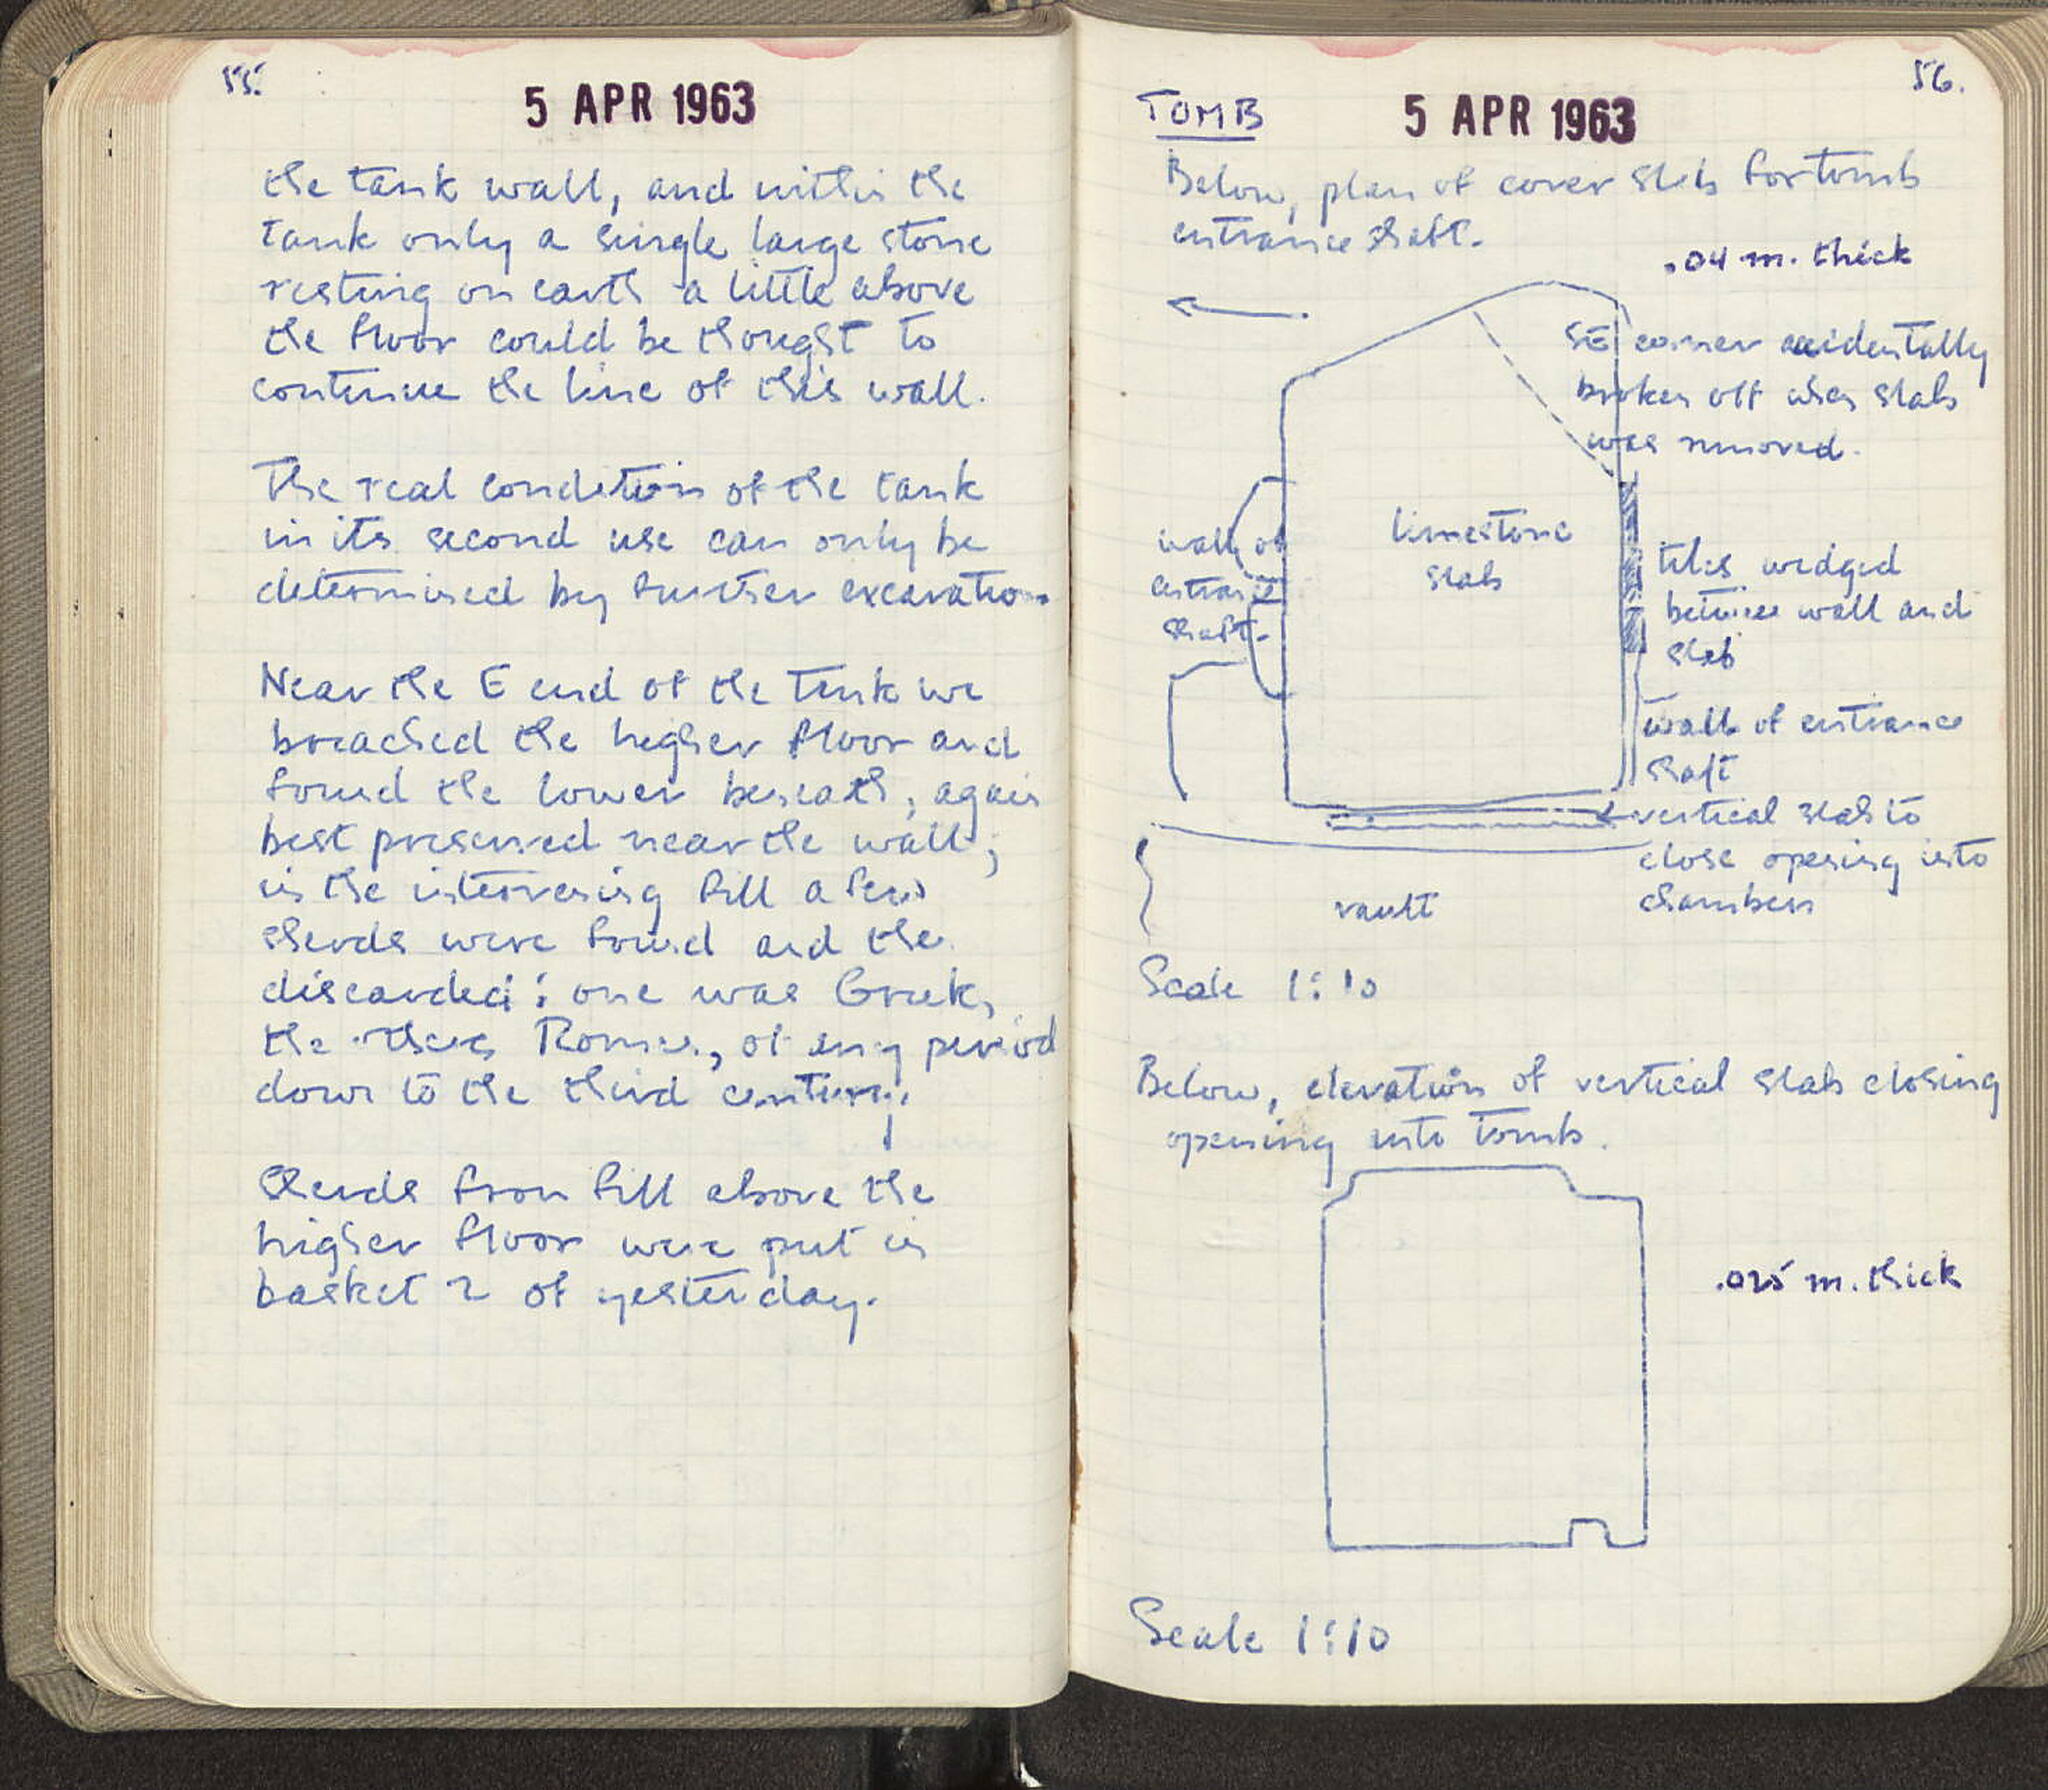 55.
5 APR 1963
the tank wall, and within the
tank only a single large stone
resting on earth a little above
the floor could be thought to
continue the line of this wall.
The real condition of the tank
in its second use can only be
determined by further excavation.
Near the E end of the tank we
breached the higher floor and
found the lower beneath, again
best preserved near the wall;
in the intervening fill a few
sherds were found and the
discarded: one was Greek,
the others Roman, of any period
down to the third century.
Sherds from fill above the
higher floor were put in
basket 2 of yesterday.
56.
TOMB
5 APR 1963
Below, plan of cover slab for tomb
entrance shaft.
.04 m. thick
SE corner accidentally
broken off when slab
was removed.
wall of
entrance
shaft.
limestone
slab
tiles wedged
between wall and
slab
wall of entrance
shaft
vertical slab to
close opening into
chamber
vault
Scale 1:10
Below, elevation of vertical slab closing
opening into tomb.
.025 m. thick
Scale 1:10